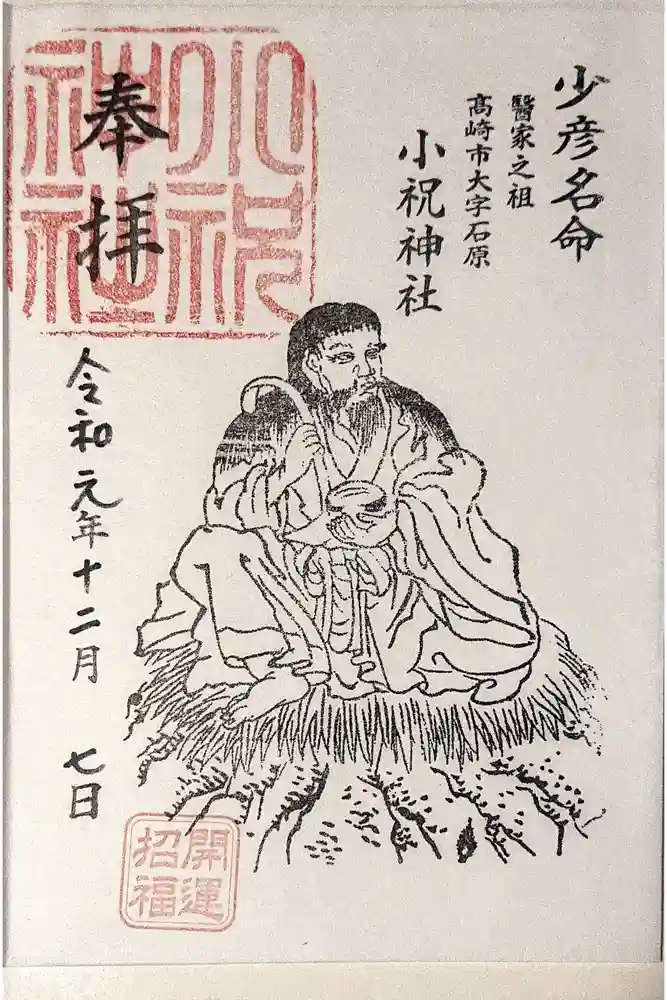 少彦名命
醫家之祖
高崎市大字石原
小祝神社
奉拝
小祝神社
令和元年十二月 七日
開運
招福